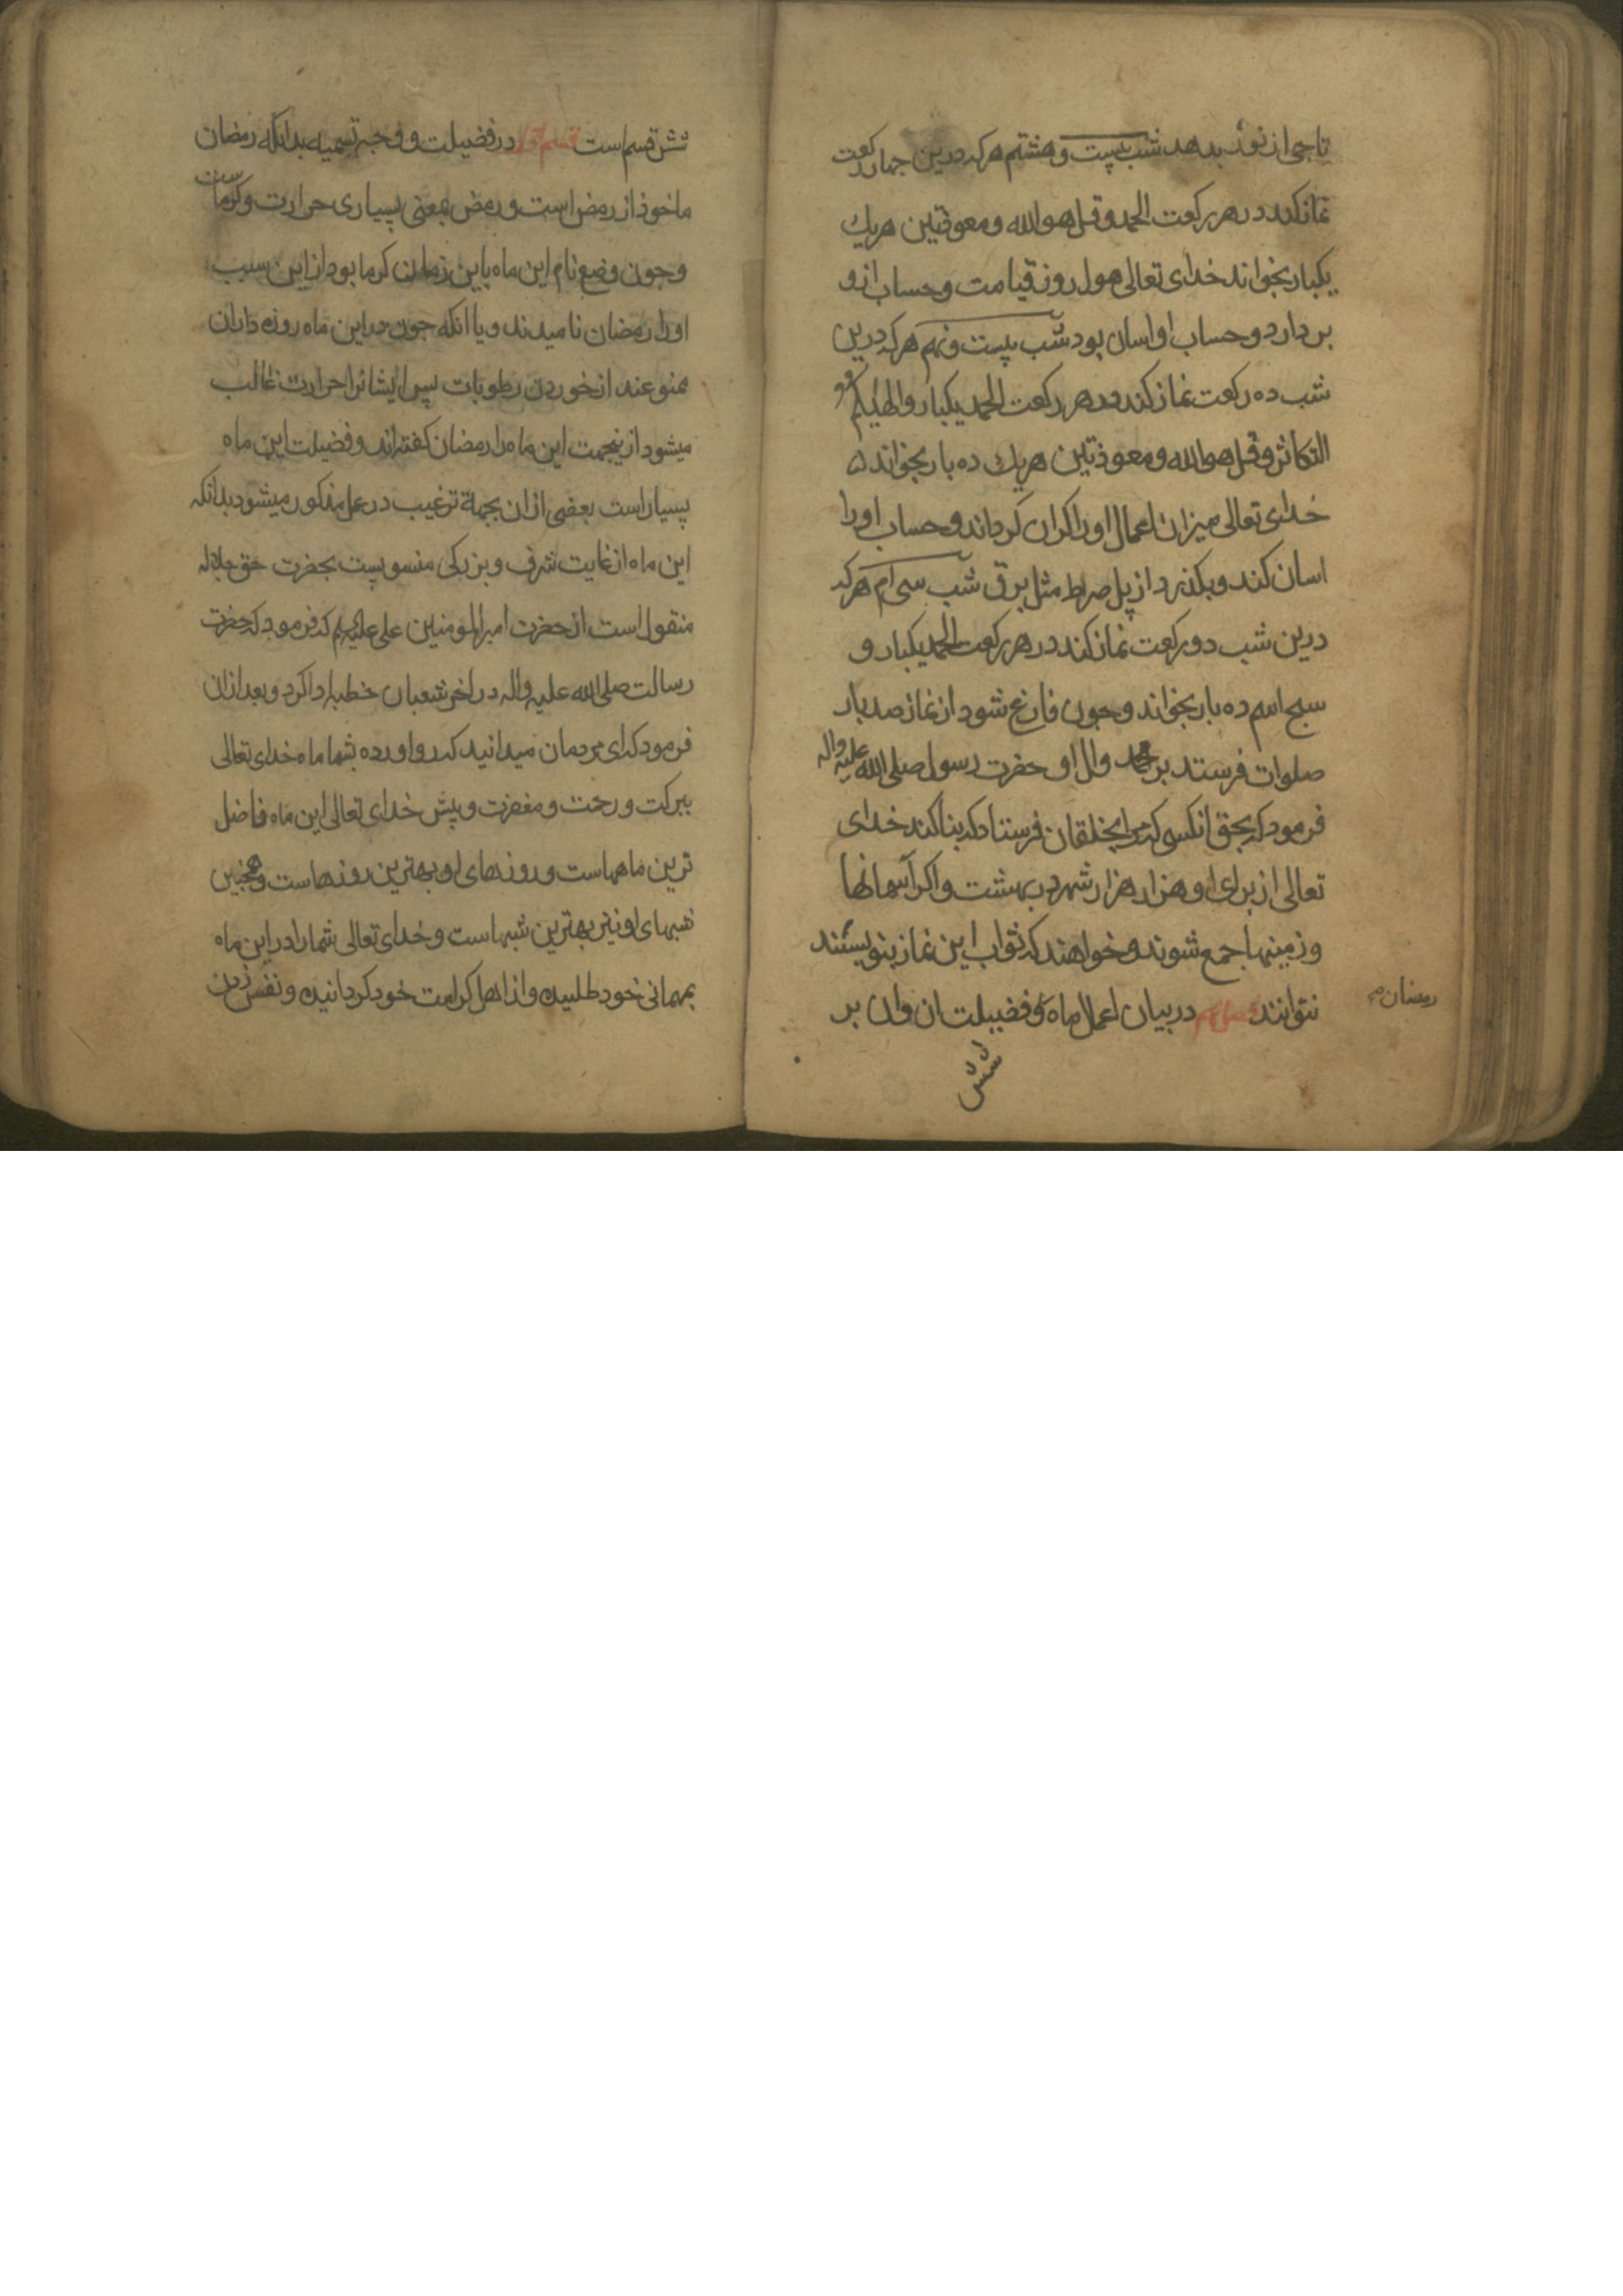 تاجی از نور بدهد شب بیست و هشتم هر که درین جهار رکعت
نماز کند در هر رکعت الحمد و قل هو الله و معوذتین هر یک
یکبار بخواند خدای تعالی هول روز قیامت و حساب ازو
بر دارد و حساب او اسان بود شب بیست و نهم هر که درین
شب ده رکعت نماز کند در هر رکعت الحمد یکبار و الهیکم
التکاثر و قل هو الله و معوذتین هر یک ده بار بخواند
خدای تعالی میزان اعمال او را کران کرداند و حساب او را
اسان کند و بکذرد از پل صراط مثل برق شب سی ام هر که
درین شب دو رکعت نماز کند در هر رکعت الحمد یکبار و
سبح اسم ده بار بخواند و جون فارغ شود از نماز صد بار
صلوات فرستد بر محمد وال او حضرت رسول صلی الله علیه واله
فرمود که بحق انکسی که مرا بخلقان فرستاد که بنا کند خدای
تعالی از برای او هزار هزار شهر در بهشت و اکر آسمانها
و زمینها جمع شوند و خواهند که ثواب این نماز بنویسند
نتوانند در بیان اعمال ماه و فضیلت ان وان بر
رمضان
شش
شش قسم است قسم اول در فضیلت و وجه تسمیه بدانکه رمضان
ماخوذ از رمض است و رمض بمعنی بسیاری حرارت و کرماست
و جون وضع نام این ماه باین زمان کرما بود از این سبب
او را رمضان نامیدند و یا انکه جون در این ماه روزه داران
ممنوعند از خوردن رطوبات پس ایشانرا حرارت غالب
میشود ازینجهت این ماه را رمضان کفته اند و فضیلت این ماه
بسیار است بعضی از ان بجهة ترغیب در عمل مذکور میشود بدانکه
این ماه از غایت شرف و بزرکی منسوبست بحضرت حق جلاله
منقول است از حضرت امیر المومنین علی علیه که فرمود که حضرت
رسالت صلی الله علیه واله در اخر شعبان خطبه ادا کرد و بعد از ان
فرمود که ای مردمان میدانید که رو اورده بشما ماه خدای تعالی
ببرکت و رحمت و مغفرت و پیش خدای تعالی این ماه فاضل
ترین ماههاست و روزهای او بهترین روزهاست و همچنین
شبهای او نیز بهترین شبهاست و خدای تعالی شما را در این ماه
بمهمانی خود طلبیده و از اهل کرامت خود کردانیده و نفس زدن